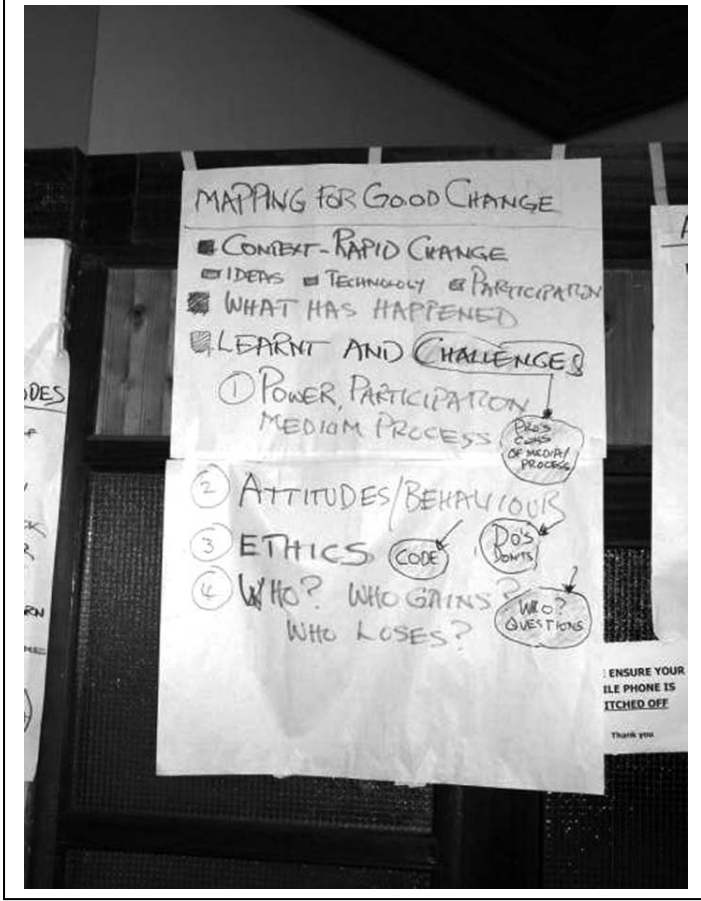 MAPPING FOR GOOD CHANGE
CONTEXT-RAPID CHANGE
IDEAS TECHNOLOGY PARTICIPATION
WHAT HAS HAPPENED
LEARNT AND CHALLENGES
① POWER, PARTICIPATION
MEDIUM PROCESS
PRO'S
CONS
OF MEDIA/
PROCESS
② ATTITUDES/BEHAVIOUR
③ ETHICS CODE
DO'S
DONTS
④ WHO? WHO GAINS?
WHO LOSES?
WHO?
QUESTIONS
ODES
RN
ENSURE YOUR
ILE PHONE IS
ITCHED OFF
Thank you